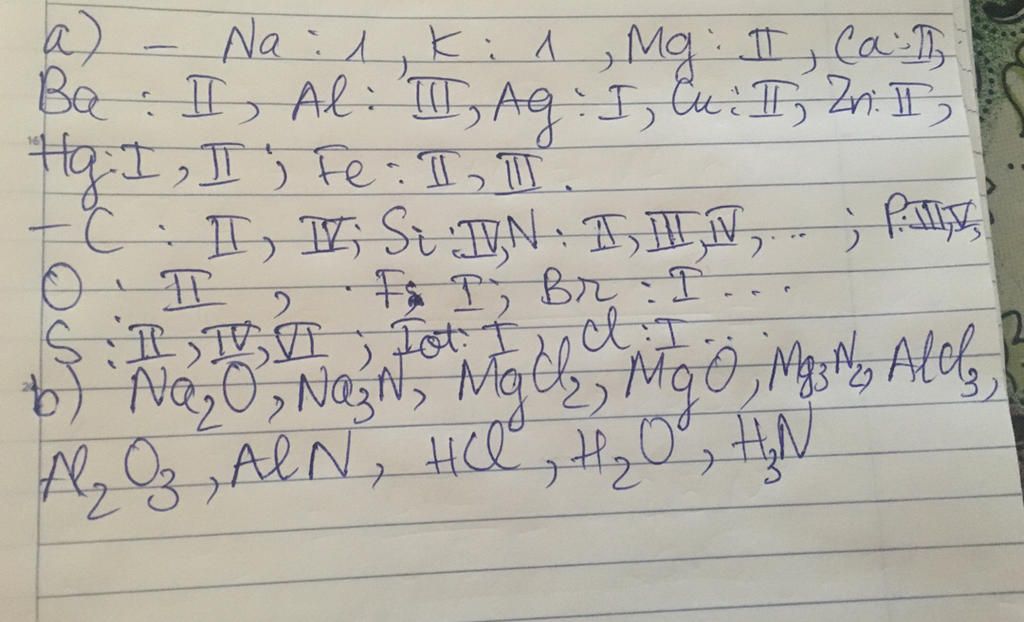 a) - Na : 1, K : 1, Mg : II, Ca : II,
Ba : II, Al : III, Ag : I, Cu : II, Zn : II,
Hg : I, II ; Fe : II, III.
- C : II, IV; Si : IV, N : II, III, IV, ... ; P : III, V,
O : II , F : I; Br : I ...
S : II, IV, VI ; Iot : I, Cl : I ...
b) Na2O, Na3N, MgCl2, MgO, Mg3N2, AlCl3,
Al2O3, AlN, HCl, H2O, H3N